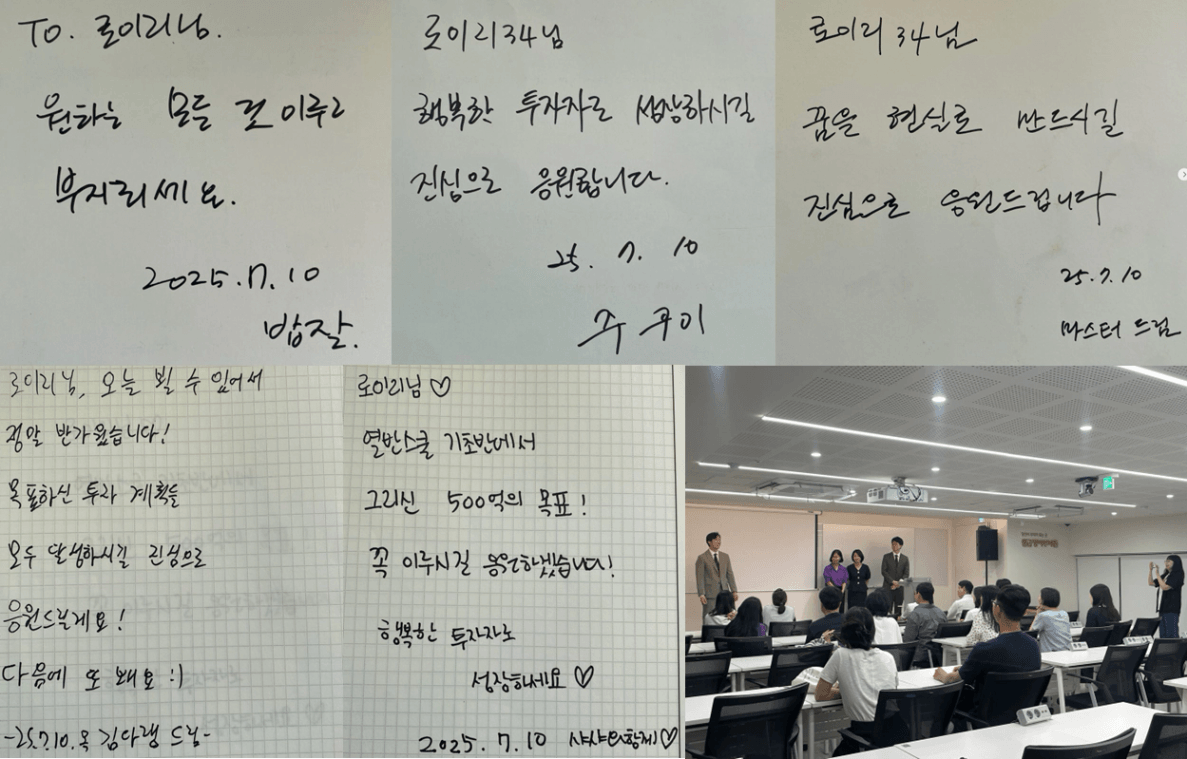 TO. 로이리님.
원하는 모든 것 이루고
부자되세요.
2025.7.10
밥잘.
로이리34님
행복한 투자자로 성장하시길
진심으로 응원합니다.
25. 7. 10
주우이
로이리34님
꿈을 현실로 만드시길
진심으로 응원드립니다
25.7.10
마스터 드림
로이리님, 오늘 뵐 수 있어서
정말 반가웠습니다!
목표하신 투자 계획들
모두 달성하시길 진심으로
응원드릴게요!
다음에 또 봬요 :)
-25.7.10. 목 김다랭 드림-
로이리님♡
열반스쿨 기초반에서
그리신 500억의 목표!
꼭 이루시길 응원하겠습니다!
행복한 투자자로
성장하세요♡
2025.7.10 샤샤와함께♡